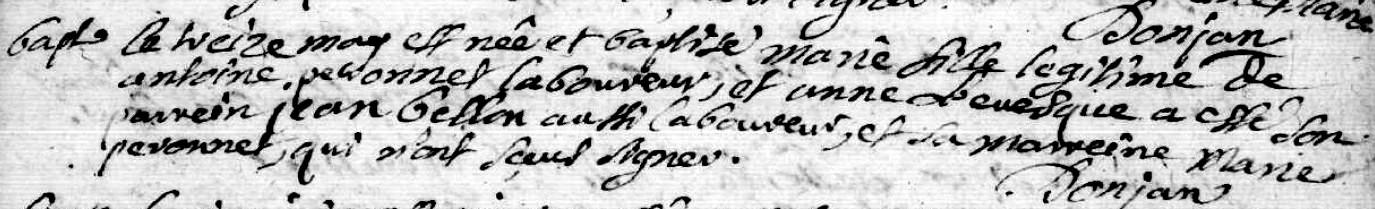 Donjan
bapt. le treize may est née et baptisé marie fille legitime de
antoine peronnet laboureur, et anne Levesque a esté son
parrein jean bellon aussi laboureur, et sa marreine marie
peronnet, qui n'ont sçeu signer.
Donjan